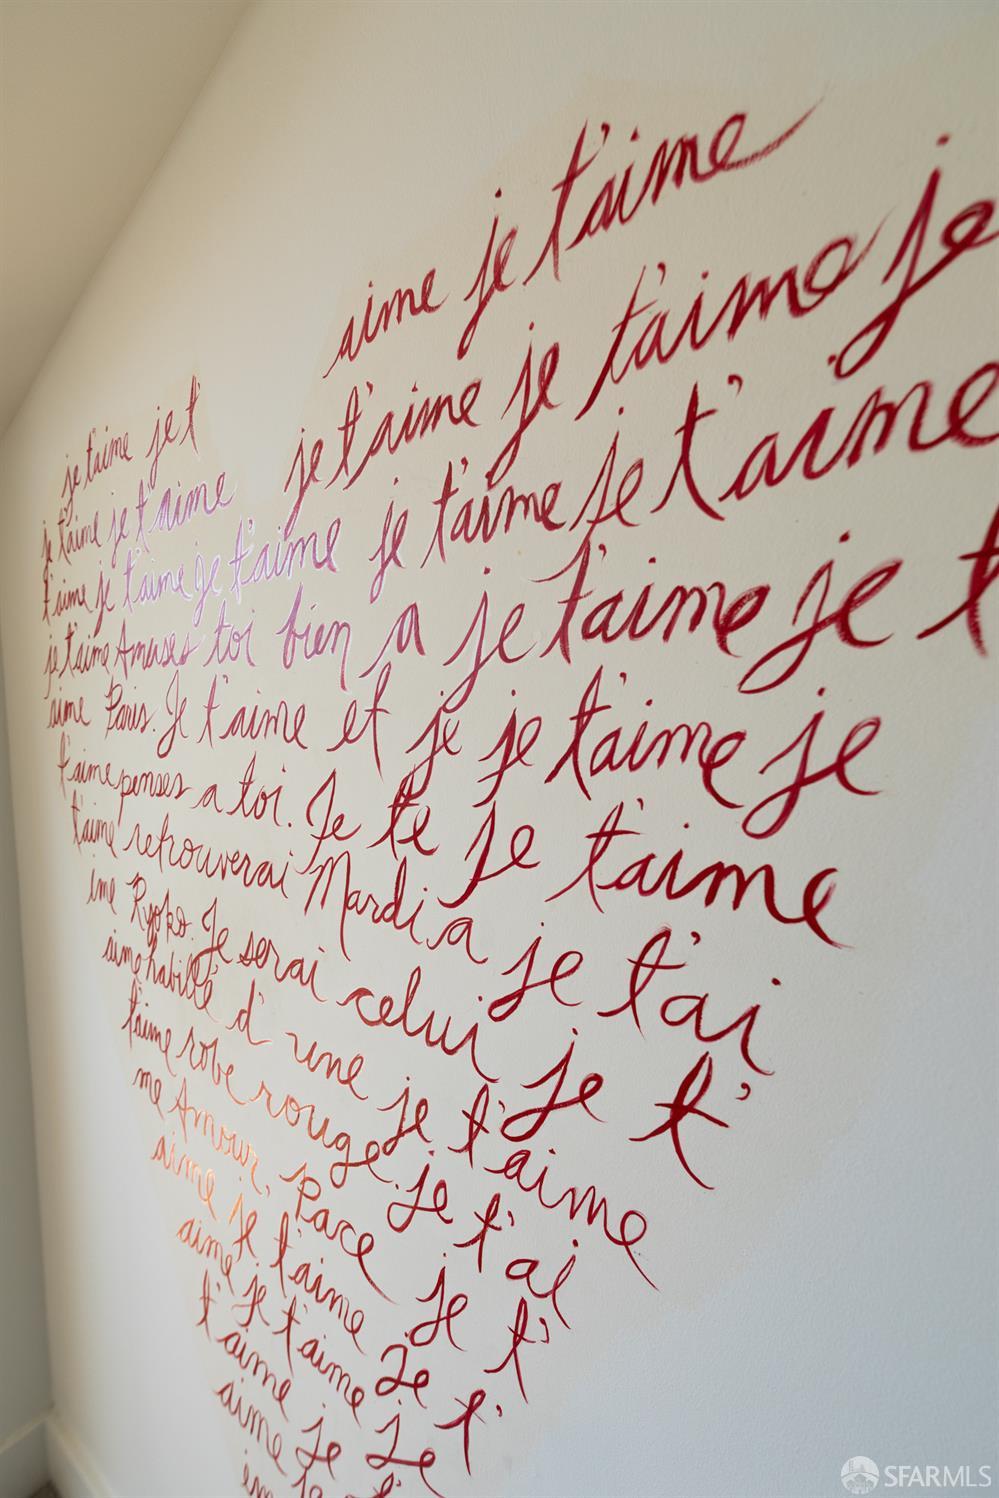 aime je t'aime
je t'aime je t'aime je
je t'aime je t'
je t'aime je t'aime je t'aime je t'aime
t'aime je t'aime je t'aime je t'aime je t
je t'aime Amuses toi bien a je t'aime je
aime Paris. Je t'aime et je je t'aime je
t'aime penses a toi. Je te je t'aime
t'aime retrouverai Mardi a je t'ai
ime Ryoko. Je serai celui je t'
aime habillé d'une je t'aime
t'aime robe rouge. je t'ai
me Amour, Pace je t'
aime je t'aime Je t'
aime je t'aime je
t'aime je
aime je
im
SFARMLS